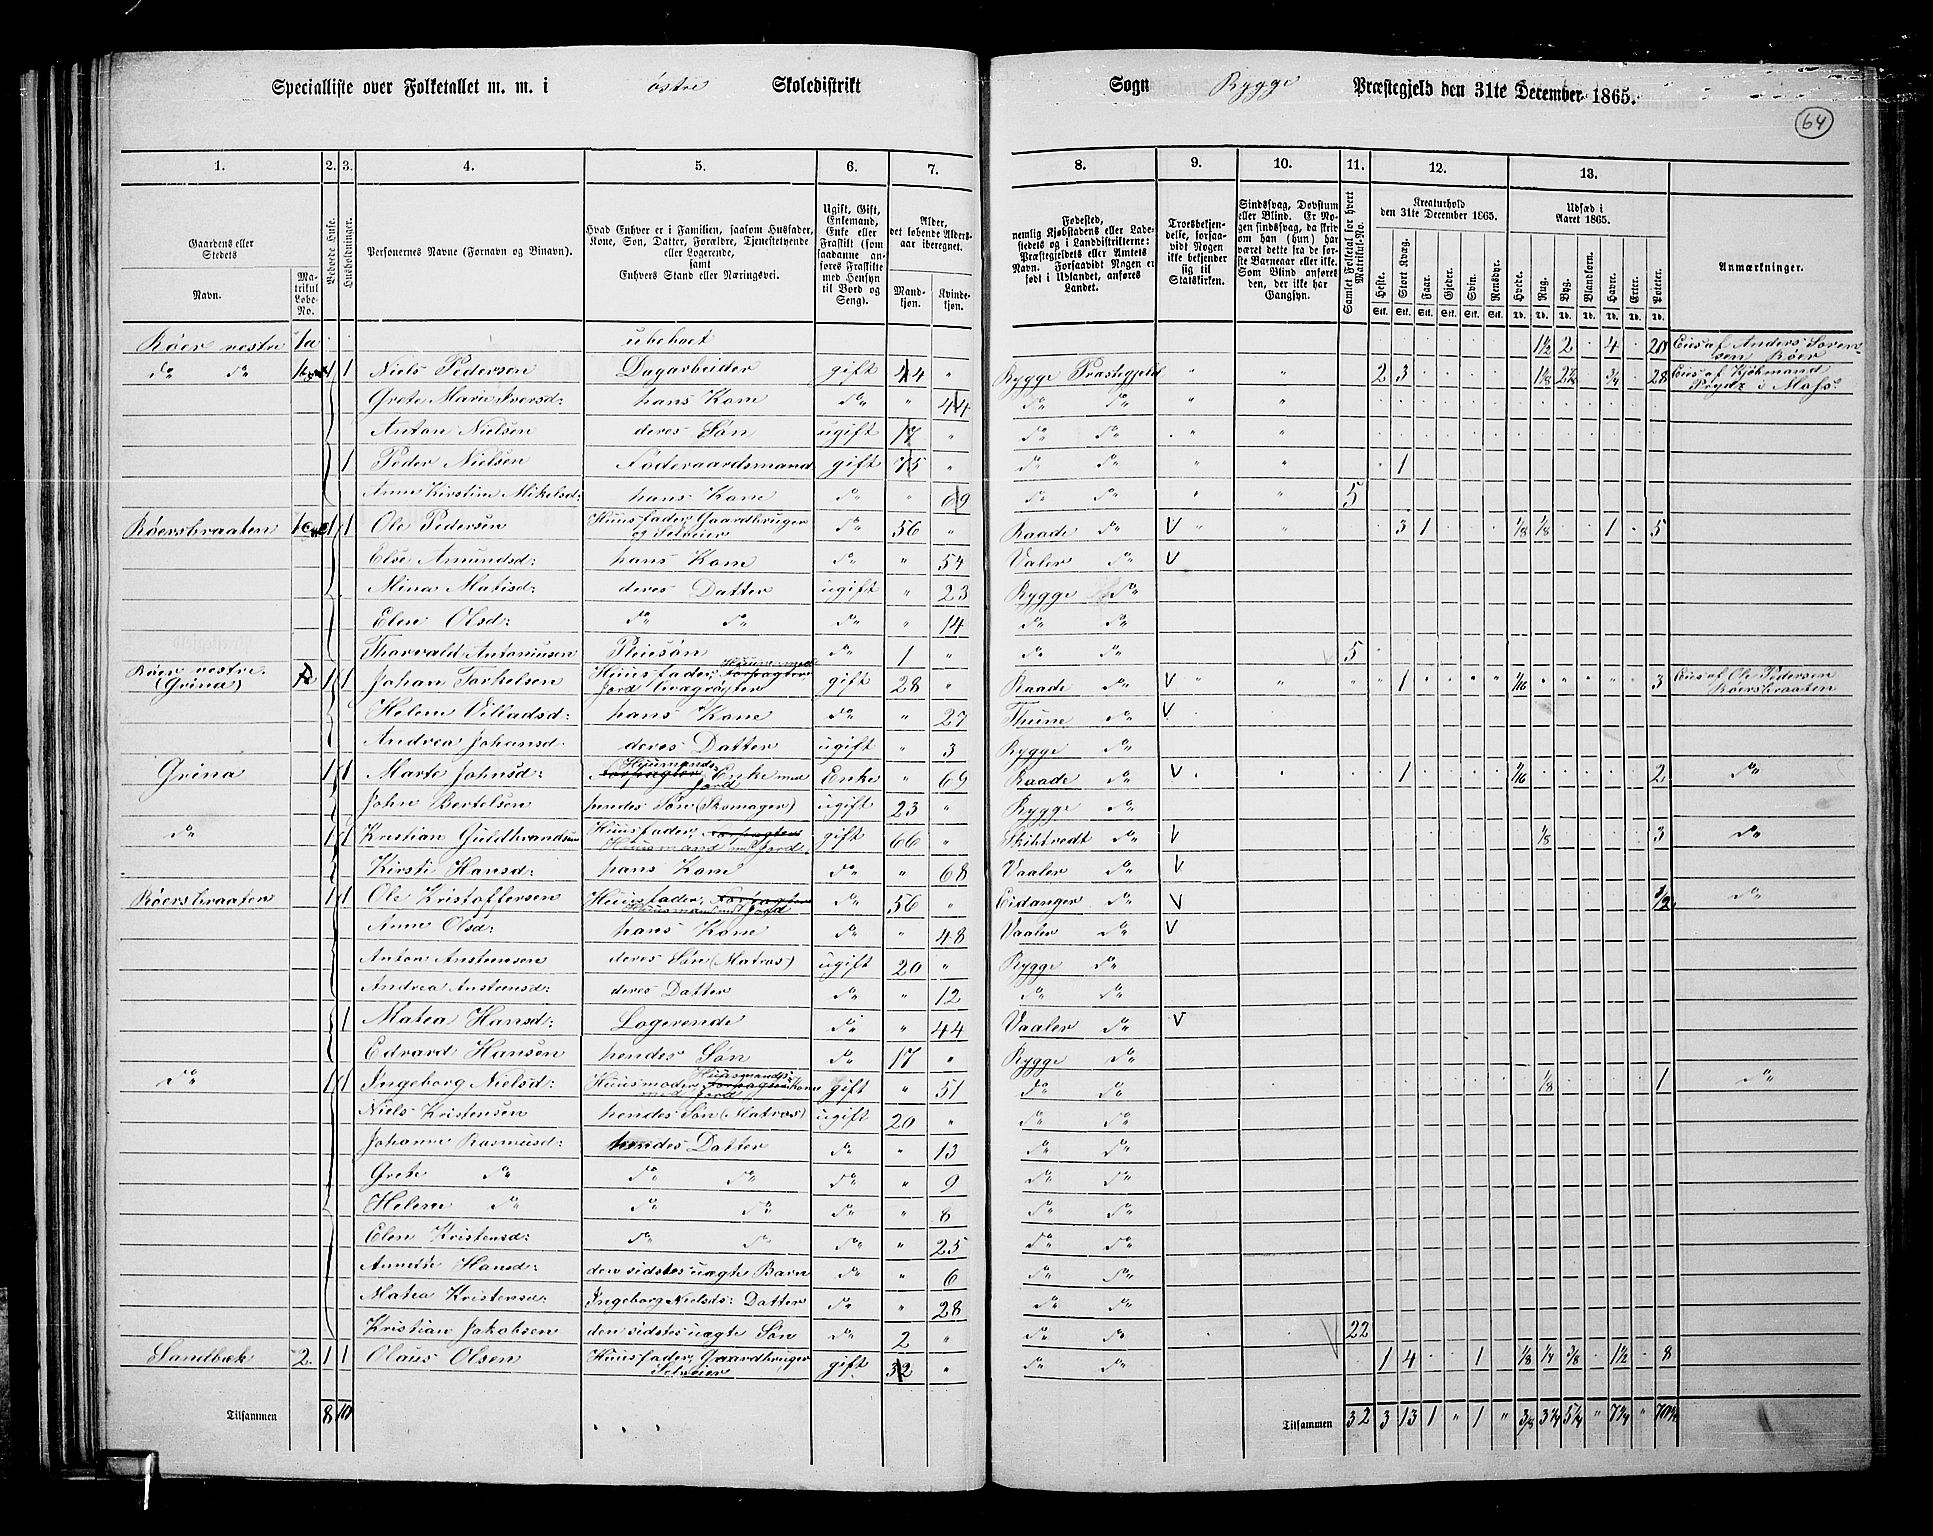 Specialliste over Folketallet m. m. i østre Skoledistrikt Sogn Rygge Præstegjeld den 31te December 1865.
64
1. 2. 3. 4. 5. 6. 7. 8. 9. 10. 11. 12. 13.
Gaardens eller Stedets
Navn.
Matrikul Løbe-No.
Beboede Huse.
Husholdninger.
Personernes Navne (Fornavn og Binavn).
Hvad Enhver er i Familien, saasom Husfader, Kone, Søn, Datter, Forældre, Tjenestetyende eller Logerende, samt Enhvers Stand eller Næringsvei.
Ugift, Gift, Enkemand, Enke eller Fraskilt (som saadanne anføres Fraskilte med Hensyn til Bord og Seng).
Alder, det løbende Alders-aar iberegnet.
Mandkjøn. Kvindekjøn.
Fødested, nemlig Kjøbstadens eller Ladestedets og i Landdistrikterne: Præstegjeldets eller Amtets Navn. Forsaavidt Nogen er født i Udlandet, anføres Landet.
Troesbekjendelse, forsaavidt Nogen ikke bekjender sig til Statskirken.
Sindssvag, Døvstum eller Blind. Er Nogen sindssvag, da skrives om han (hun) har været dette fra de første Barneaar eller ikke. Som Blind anføres den, der ikke har Gangsyn.
Samlet Folketal for hvert Matrikul-No.
Kreaturhold den 31te December 1865.
Heste. Stort Kvæg. Faar. Gjeder. Svin. Rensdyr.
Udsæd i Aaret 1865.
Hvede. Rug. Byg. Blandkorn. Havre. Erter. Poteter.
Anmærkninger.
Røer vestre 1a ubeboet 1½ 2 4 20 Eies af Anders Sørensen Røer
do do 1 1 Niels Pedersen Dagarbeider gift 44 " Rygge Præstegjeld " " 2 3 28 Eies af Kjøbmand Prydz i Moss.
Grete Marie Iversd: hans Kone do " 44 do do
Anton Nielsen deres Søn ugift 17 " do do
1 Peder Nielsen Føderaadsmand gift 75 " do do 1
Anne Kirstine Mikelsd: hans Kone do " 69 do do 5
Røersbraaten 1 1 Ole Pedersen Huusfader, Gaardbruger og Selveier do 56 " Raade do V 3 1 ⅛ ⅛ 1 5
Else Amundsd: hans Kone do " 54 Valer do V
Mina Matisd: deres Datter ugift " 23 Rygge do
Elen Olsd: do do do " 14 do do
Thorvald Antoniusen Pleiesøn do 1 " do do 5
Røer vestre (Grina) 1 1 Johan Torkelsen Huusfader, Huusmand med Jord gift 28 " Raade do V 1 1/16 3 Eies af Ole Pedersen Røersbraaten
Helene Villadsd: hans Kone do " 27 Thune do V
Andrea Johansd. deres Datter ugift " 3 Rygge do
Grina 1 1 Marte Johnsd: Huusmands Enke med Jord Enke " 69 Raade do V 1 1/16 2 do
John Bertelsen hendes Søn (Skomager) ugift 23 " Rygge do
do 1 1 Kristian Guldbrandsen Huusfader, Forpagter Huusmand med Jord gift 66 " Skibtvedt do V ⅛ 3 do
Kirsti Hansd: hans Kone do " 68 Vaaler do V
Røersbraaten 1 1 Ole Kristoffersen Huusfader, Forpagter Huusmand med Jord do 56 " Eidanger do V 1/2 do
Anne Olsd: hans Kone do " 48 Vaaler do V
Anton Anstensen deres Søn (Matros) ugift 20 " Rygge do
Andrea Anstensd: deres Datter do " 12 do do
1 Matea Hansd: Logerende do " 44 Vaaler do V
Edvard Hansen hendes Søn do 17 " Rygge do
do 1 1 Ingeborg Nielsd: Huusmoder, Huusmands Kone med Jord gift " 51 do do ⅛ 1 do
Niels Kristensen hendes Søn (Matros) ugift 20 " do do
Johanne Rasmusd: hendes Datter do " 13 do do
Grete do do do do " 9 do do
Helene do do do do " 8 do do
Elen Kristensd: do do do " 25 do do
Annette Hansd: den sidstes uægte Barn do " 6 do do
Matea Kristensd: Ingeborg Nielsds: Datter do " 28 do do
Kristian Jakobsen den sidstes uægte Søn do 2 " do do 22
Sandbæk 2. 1 1 Olaus Olsen Huusfader, Gaardbruger Selveier gift 32 " do do 1 4 1 ⅛ ¼ ⅜ 1½ 8
Tilsammen 8 10 Tilsammen 32 3 13 1 " 1 " ⅜ 3¼ 5¼ " 7¾ "